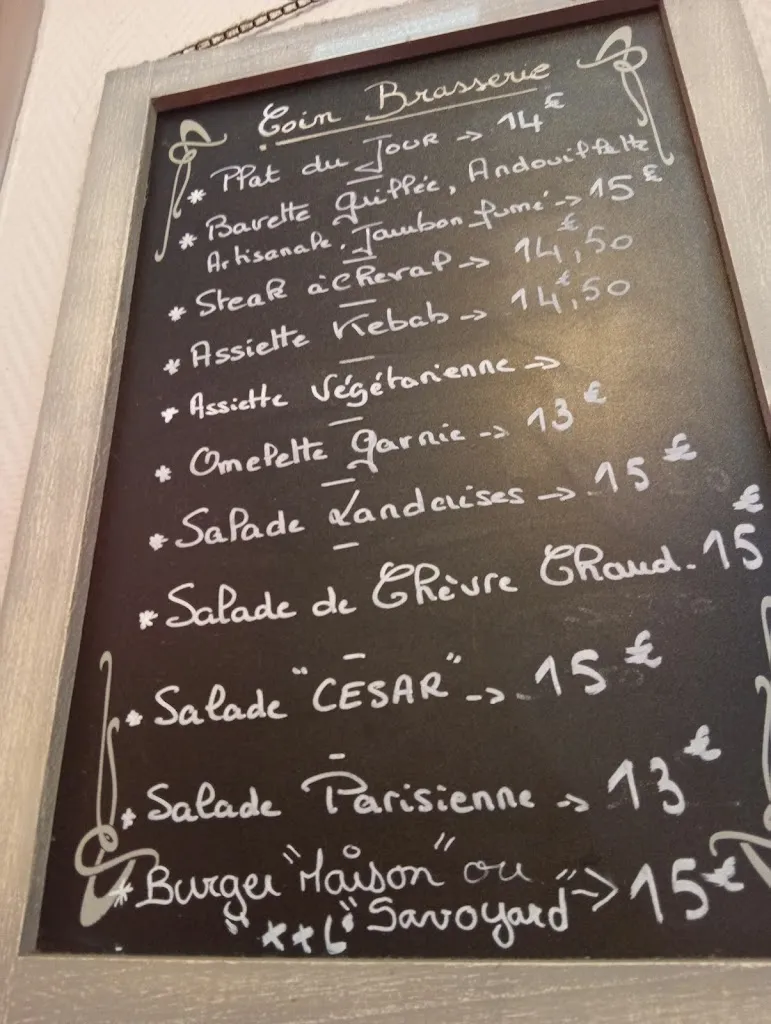 Coin Brasserie
* Plat du Jour -> 14€
* Bavette Grillée, Andouillette
Artisanale, Jambon fumé -> 15€
* Steak à Cheval -> 14€,50
* Assiette Kebab -> 14€,50
* Assiette Végétarienne ->
* Omelette Garnie -> 13€
* Salade Landaises -> 15€
* Salade de Chèvre Chaud. 15€
* Salade "CESAR" -> 15€
* Salade Parisienne -> 13€
* Burger "Maison" ou "->15€
"XXL" Savoyard